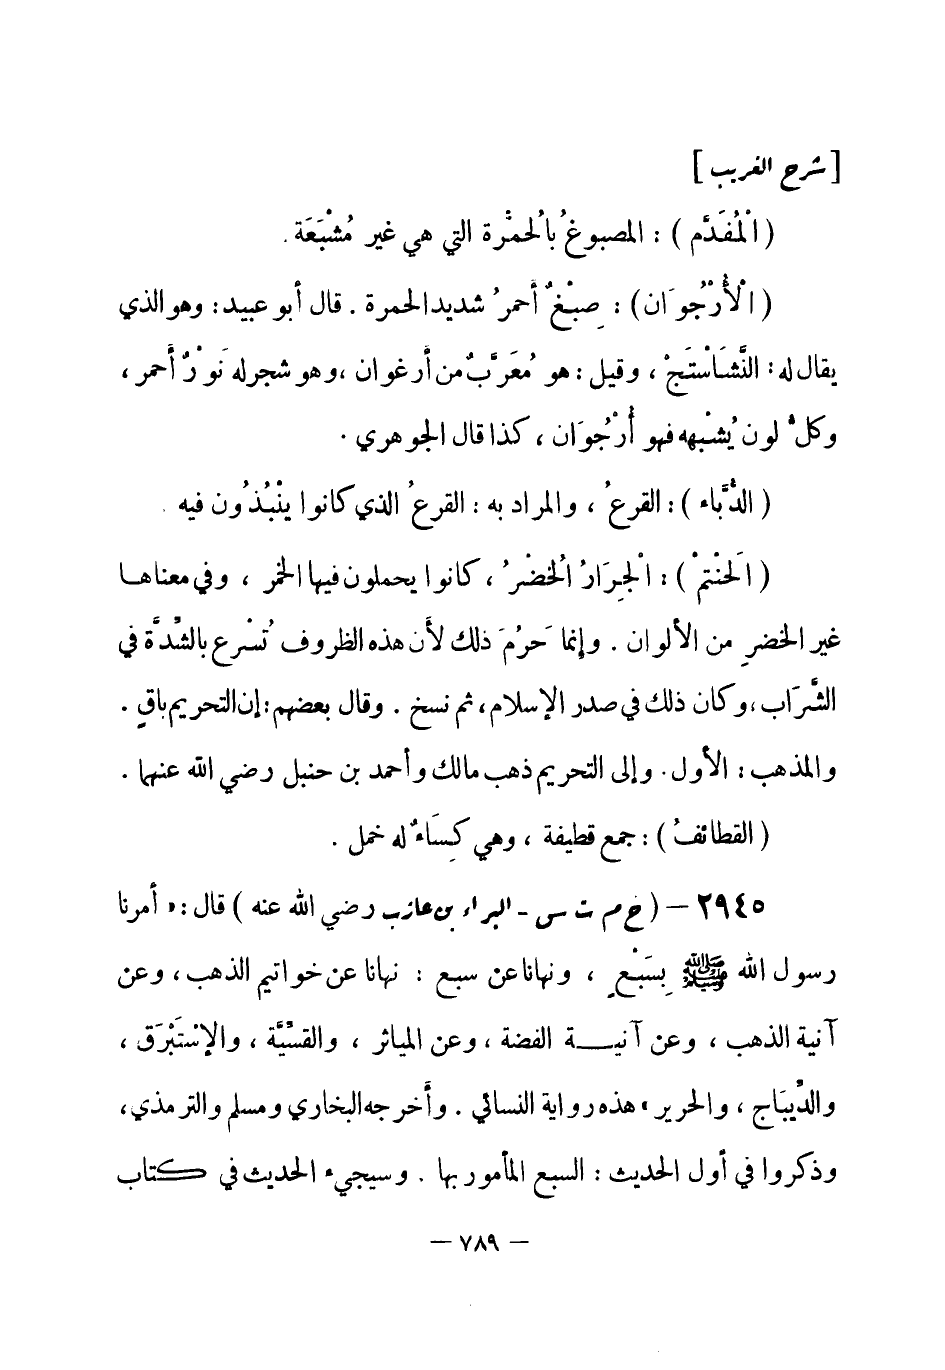 [ شرح الغريب ]
( الْمُفَدَّم ) : المصبوغُ بالْحمْرة التي هي غير مُشْبَعَة .
( الْأُرْجُوَان ) : صِبْغٌ أحمرُ شديد الحمرة . قال أبو عبيد : وهو الذي
يقال له : النَّشَاسْتَجْ ، وقيل : هو مُعَرَّبٌ من أرغوان ، وهو شجر له نَوْرٌ أحمر ،
وكلُّ لون يُشْبهه فهو أُرْجُوَان ، كذا قال الجوهري .
( الدُّبَّاء ) : القرعُ ، والمراد به : القرعُ الذي كانوا يَنْبُذُون فيه .
( الَحنْتمْ ) : الْجِرَارُ الُخضْرُ ، كانوا يحملون فيها الخمر ، وفي معناها
غير الخضرِ من الألوان . وإنما حَرُمَ ذلك لأَن هذه الظروف تُسْرع بالشِّدَّة في
الشَّرَاب ، وكان ذلك في صدر الإسلام ، ثم نسخ . وقال بعضهم : إن التحريم باقٍ .
والمذهب : الأول . وإلى التحريم ذهب مالك وأحمد بن حنبل رضي الله عنهما .
( القطائفُ ) : جمع قطيفة ، وهي كِسَاءٌ له خمل .
٢٩٤٥ – ( خ م ت س - البراء بن عازب رضي الله عنه ) قال : « أمرنا
رسول الله ﷺ بِسَبْعٍ ، ونهانا عن سبع : نهانا عن خواتيم الذهب ، وعن
آنية الذهب ، وعن آنية الفضة ، وعن المياثر ، والقسِّيَّة ، والإسْتَبْرَق ،
والدِّيبَاج ، والحرير » هذه رواية النسائي . وأخرجه البخاري ومسلم والترمذي ،
وذكروا في أول الحديث : السبع المأمور بها . وسيجيء الحديث في كتاب
– ٧٨٩ –